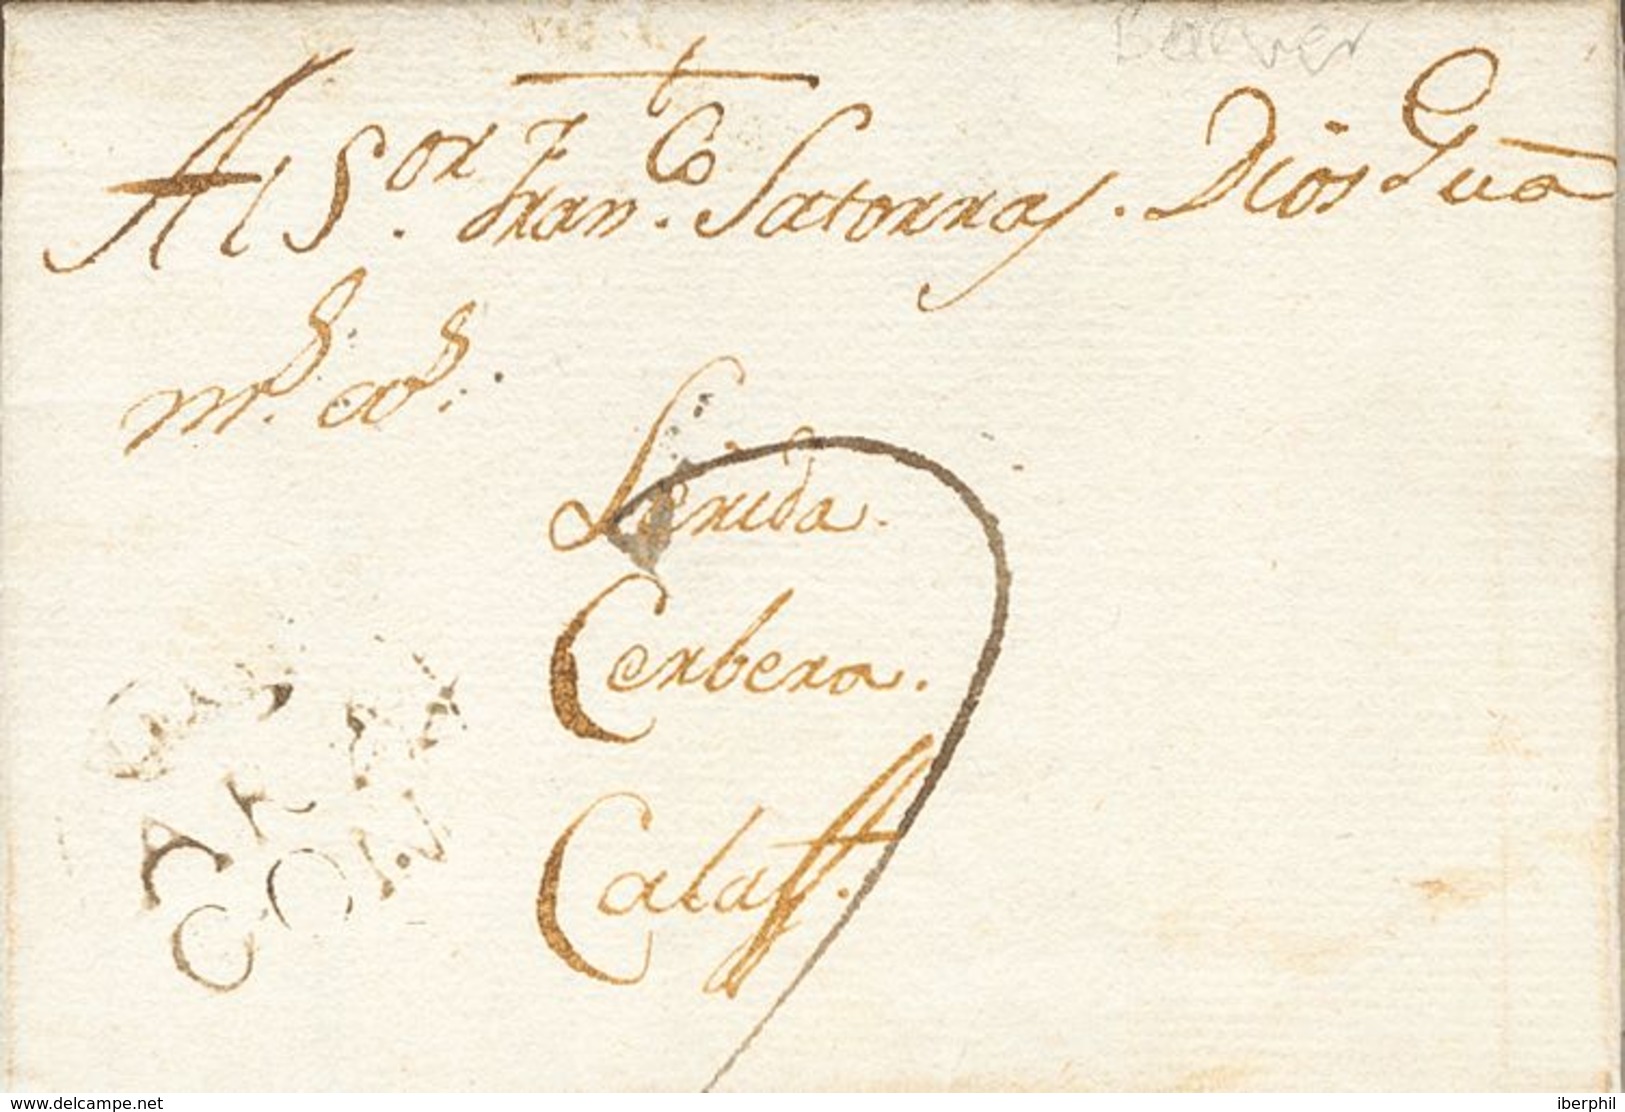 Al S.or Fran.co Satorras. Dios Gua
m.s a.s.
Lerida.
Cerbera.
Calaff.
ARA
GON
www.delcampe.net
iberphil